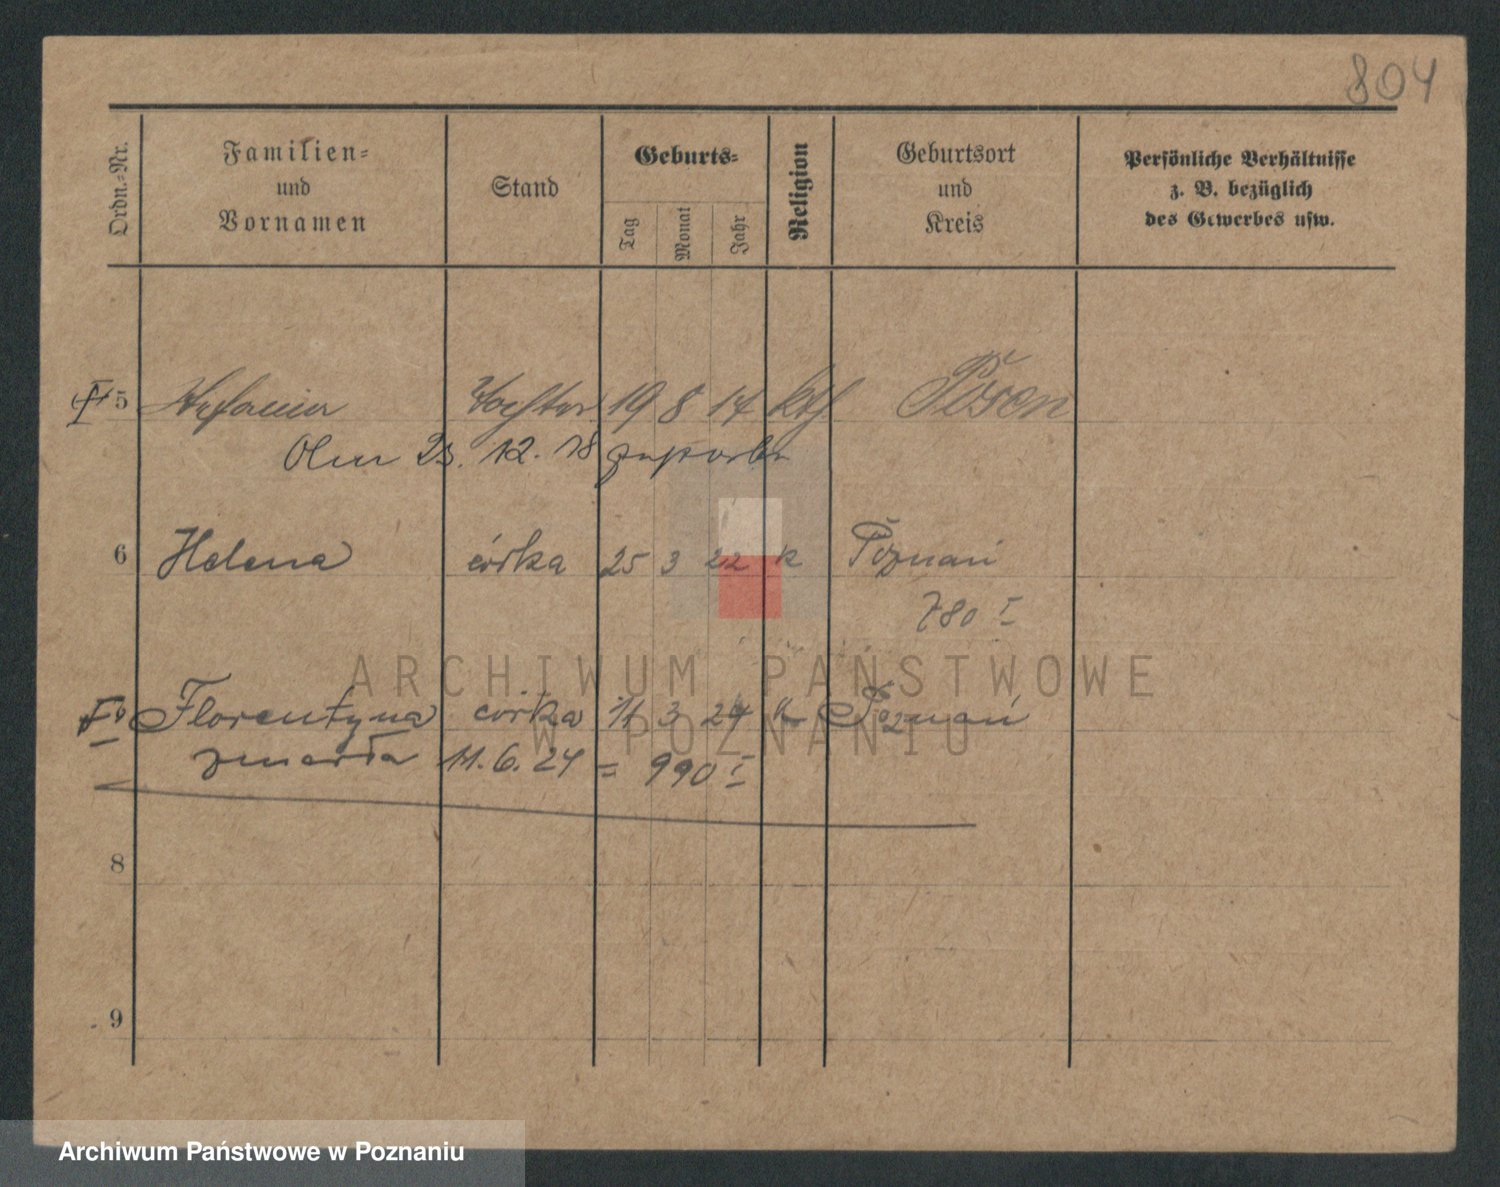 804
Ordn.-Nr. Familien- und Vornamen Stand Geburts- Tag Monat Jahr Religion Geburtsort und Kreis Persönliche Verhältnisse z. B. bezüglich des Gewerbes usw.
5 Tochter 19 8 14 kth Posen
23. 12. 18
6 Helena córka 25 3 22 k Poznań
780 I
Florentyna córka 11 3 24 k Poznań
zmarła 11.6.24 = 990 I
8
9
ARCHIWUM PAŃSTWOWE
W POZNANIU
Archiwum Państwowe w Poznaniu